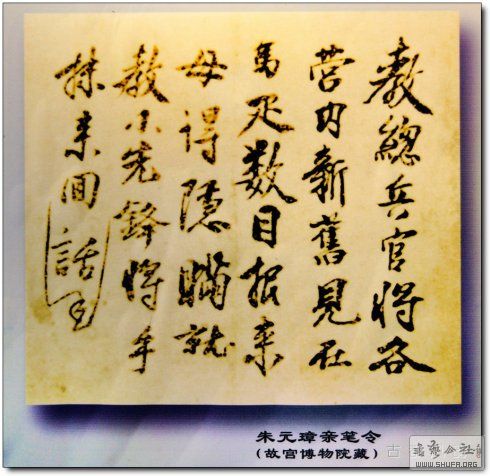 教總兵官將各
營内新舊見在
馬疋數目報来
毋得隱瞞就
教小先鋒將
来囬話
朱元璋亲笔令
(故宫博物院藏)
书艺公社
WWW.SHUFA.ORG